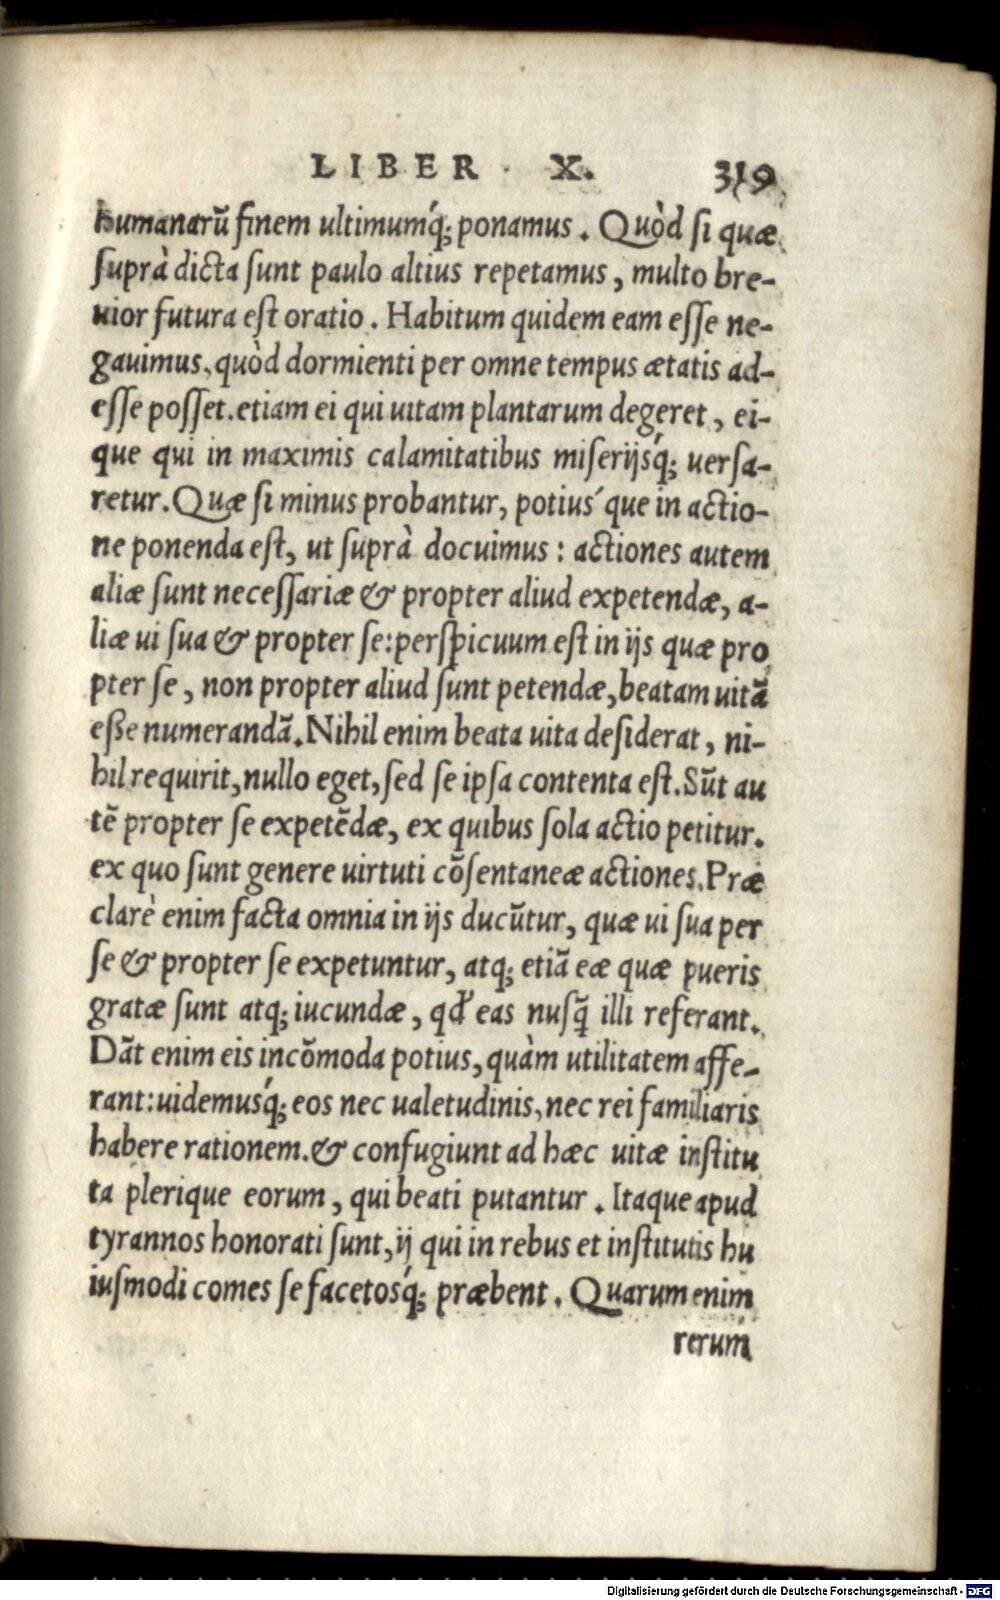 LIBER X. 319
humanarū finem ultimumq́; ponamus. Quòd si quæ
suprà dicta sunt paulo altius repetamus, multo bre-
uior futura est oratio. Habitum quidem eam esse ne-
gauimus, quòd dormienti per omne tempus ætatis ad-
esse posset. etiam ei qui uitam plantarum degeret, ei-
que qui in maximis calamitatibus miserijsq́; uersa-
retur. Quæ si minus probantur, potius´que in actio-
ne ponenda est, ut suprà docuimus: actiones autem
aliæ sunt necessariæ & propter aliud expetendæ, a-
liæ ui sua & propter se: perspicuum est in ijs quæ pro
pter se, non propter aliud sunt petendæ, beatam uitā
esse numerandā. Nihil enim beata uita desiderat, ni-
hil requirit, nullo eget, sed se ipsa contenta est. Sūt au
tē propter se expetēdæ, ex quibus sola actio petitur.
ex quo sunt genere uirtuti cōsentaneæ actiones. Præ
clarè enim facta omnia in ijs ducūtur, quæ ui sua per
se & propter se expetuntur, atq; etiā eæ quæ pueris
gratæ sunt atq; iucundæ, qđ eas nusq̄ illi referant.
Dāt enim eis incōmoda potius, quàm utilitatem affe-
rant: uidemusq́; eos nec ualetudinis, nec rei familiaris
habere rationem. & confugiunt ad hæc uitæ institu
ta plerique eorum, qui beati putantur. Itaque apud
tyrannos honorati sunt, ij qui in rebus et institutis hu
iusmodi comes se facetosq́; præbent. Quarum enim
rerum
Digitalisierung gefördert durch die Deutsche Forschungsgemeinschaft - DFG